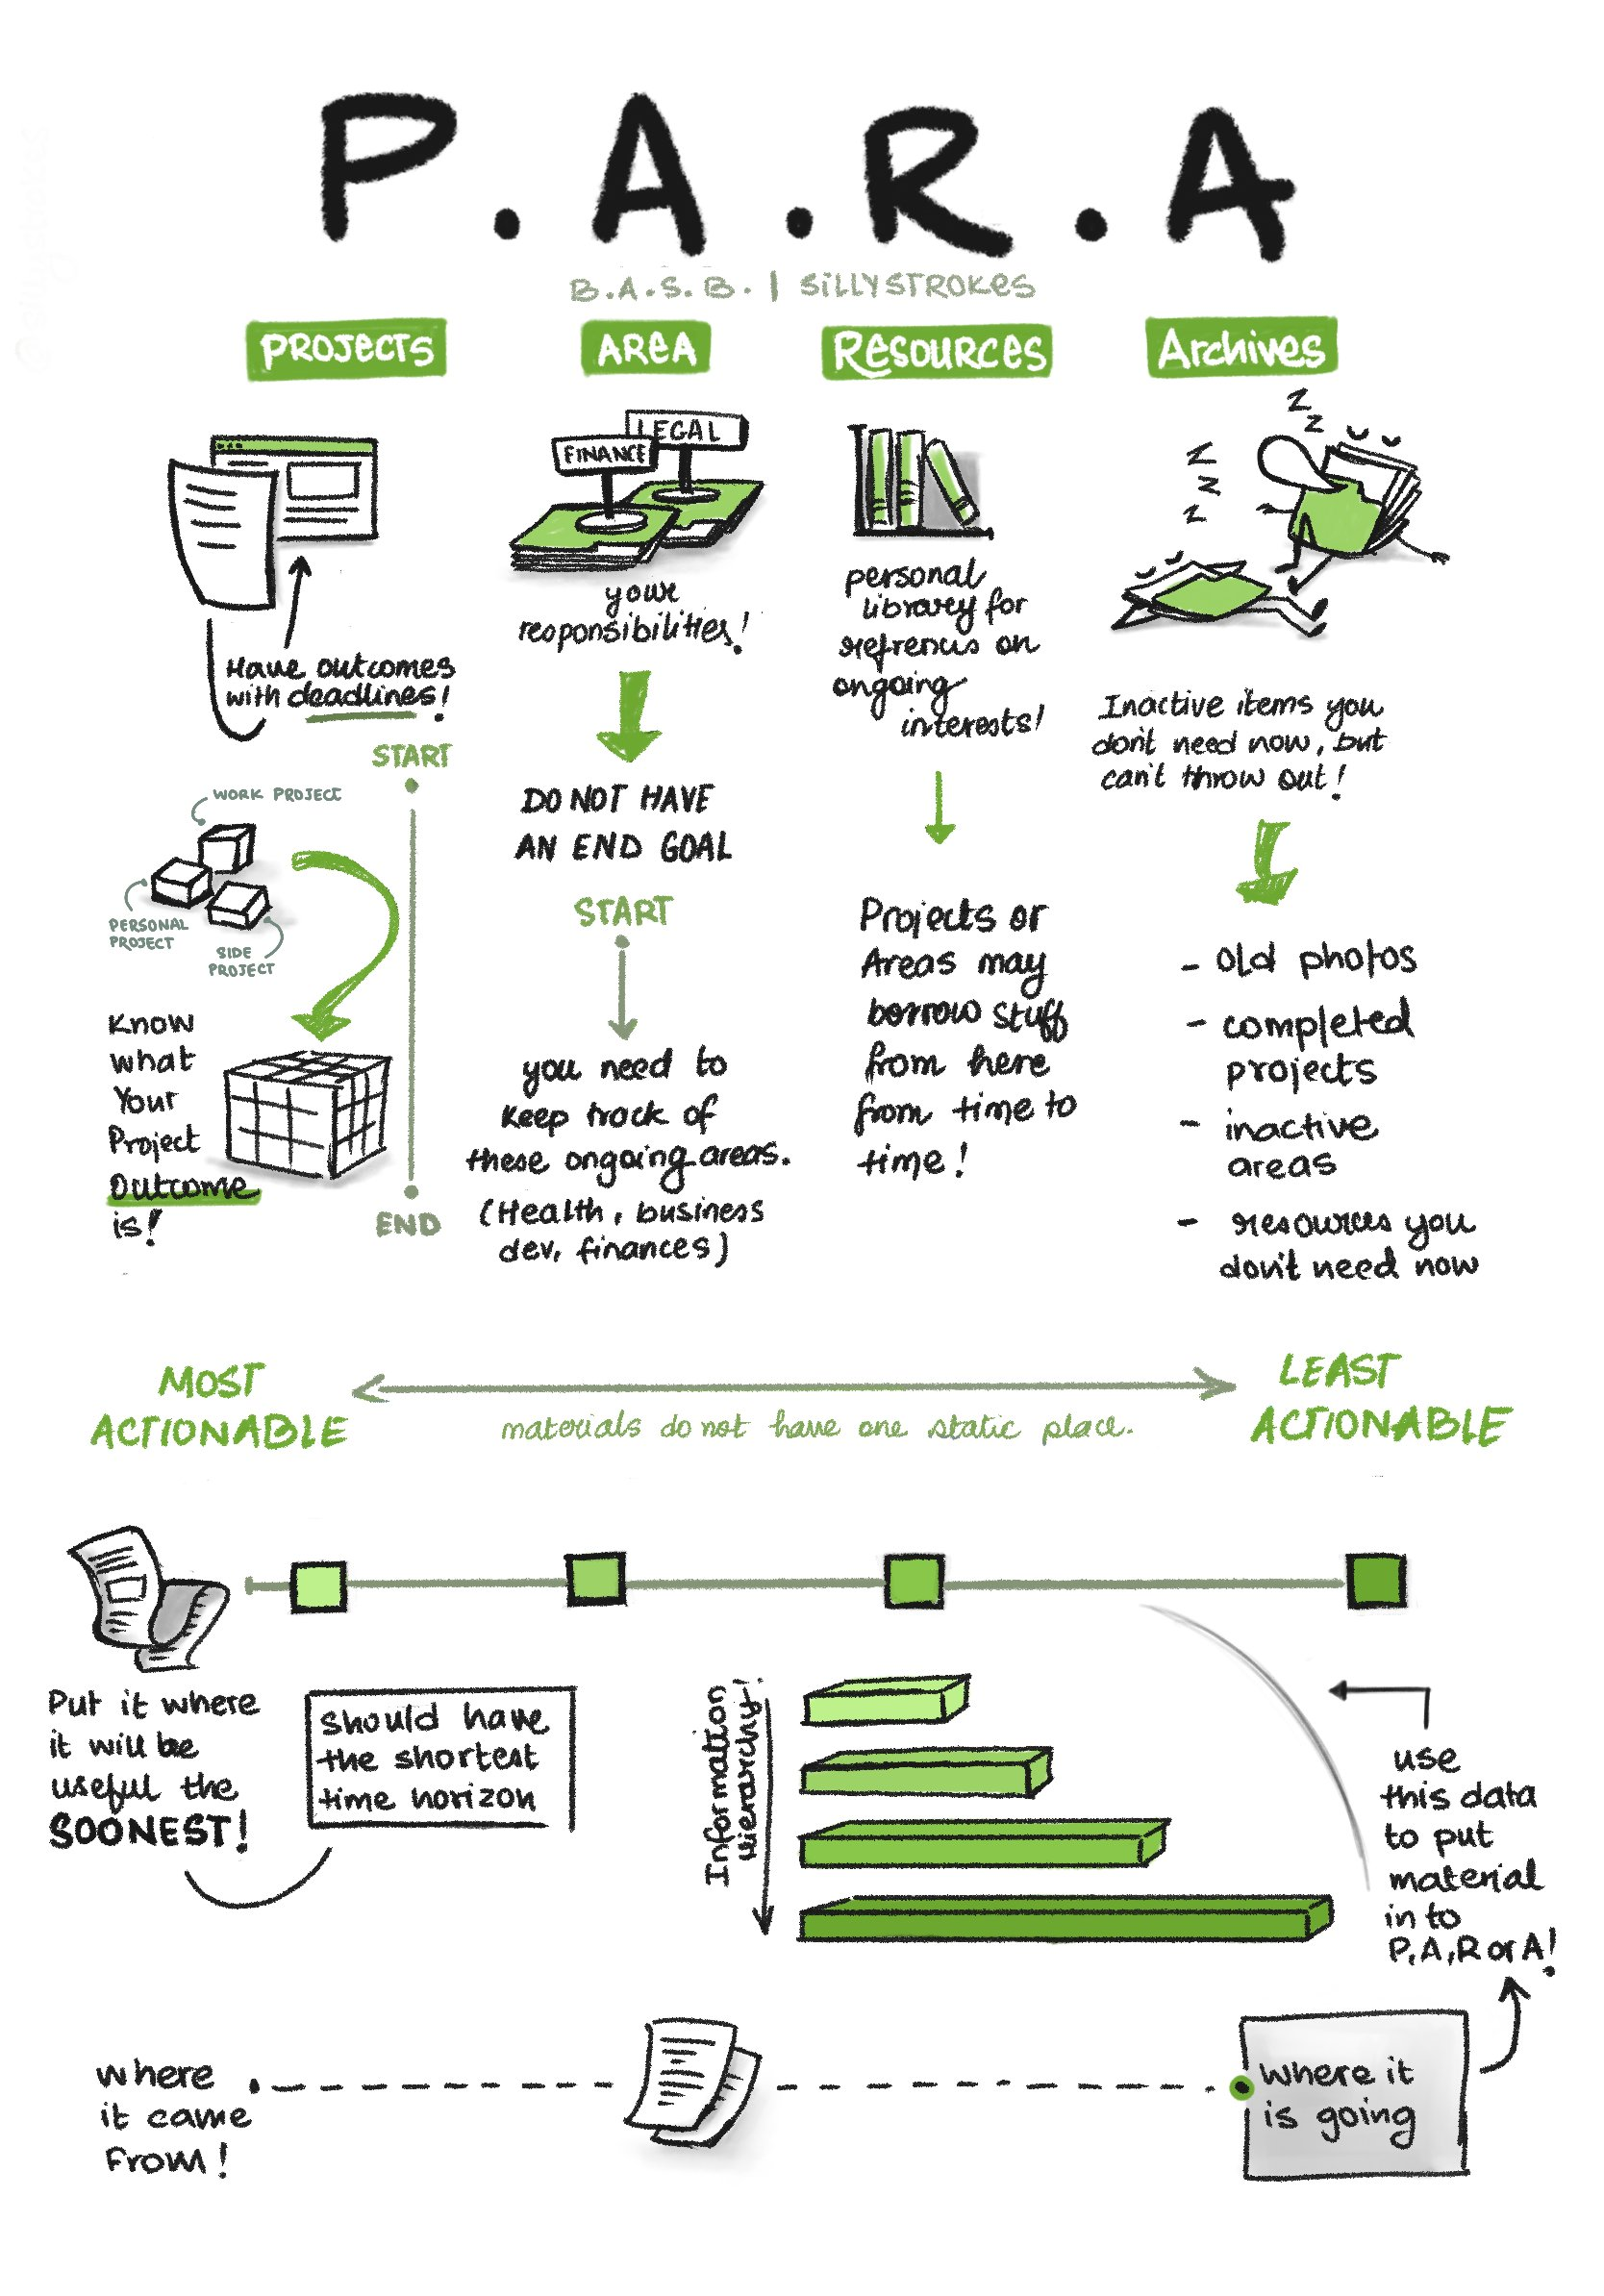 P.A.R.A
B.A.S.B. | SiLLYSTROKES
PROJECTS
Have outcomes
with deadlines!
START
WORK PROJECT
PERSONAL
PROJECT
SIDE
PROJECT
Know
what
Your
Project
Outcome
is!
END
AREA
LEGAL
FINANCE
your
responsibilities!
DO NOT HAVE
AN END GOAL
START
you need to
keep track of
these ongoing areas.
(Health, business
dev, finances)
Resources
personal
library for
refrences on
ongoing
interests!
Projects or
Areas may
borrow stuff
from here
from time to
time!
Archives
z
z
z
z
z
Inactive items you
don't need now, but
can't throw out!
- old photos
- completed
projects
- inactive
areas
- resources you
don't need now
MOST
ACTIONABLE
materials do not have one static place.
LEAST
ACTIONABLE
Put it where
it will be
useful the
SOONEST!
should have
the shortest
time horizon
Information
Hierarchy!
use
this data
to put
material
in to
P,A,R or A!
where
it came
from!
where it
is going